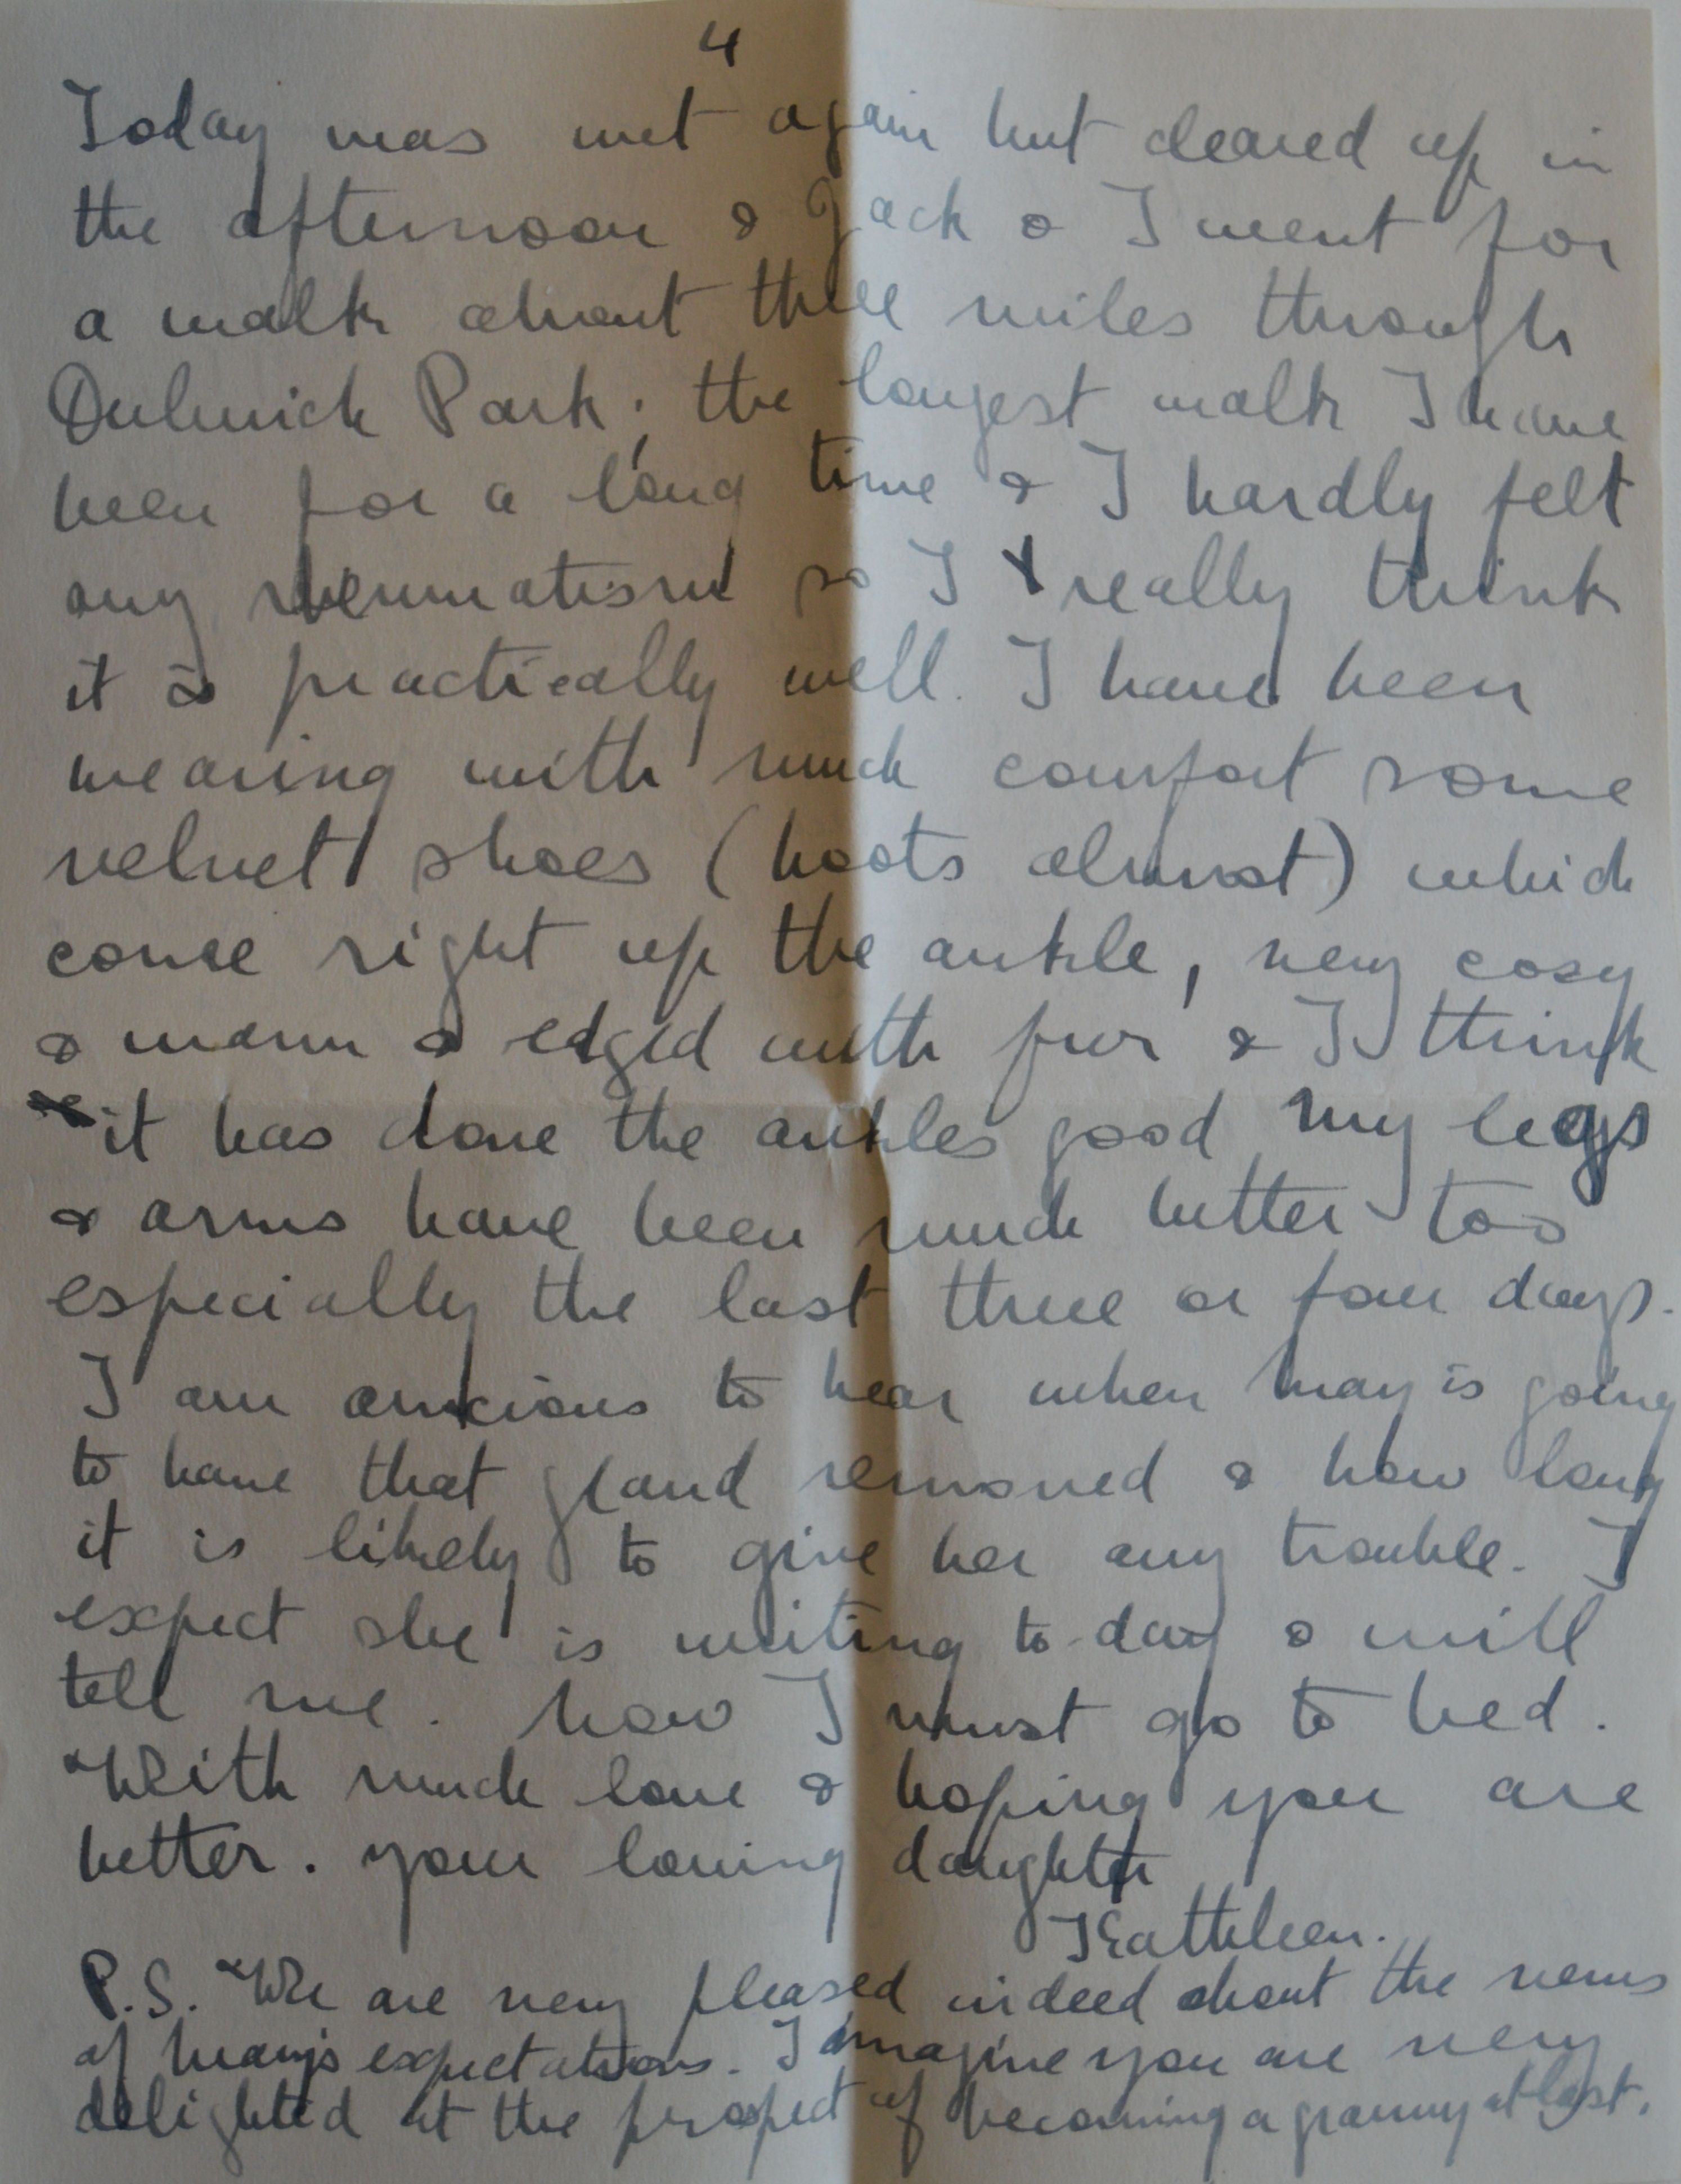 4
Today was wet again but cleared up in
the afternoon & Jack & I went for
a walk about three miles through
Dulwich Park; the longest walk I have
been for a long time & I hardly felt
any rheumatism so I really think
it is practically well. I have been
wearing with much comfort some
velvet shoes (boots almost) which
come right up the ankle, very cosy
& warm & edged with fur & I think
it has done the ankles good my legs
& arms have been much better too
especially the last three or four days.
I am anxious to hear when May is going
to have that gland removed & how long
it is likely to give her any trouble. I
expect she is writing to-day & will
tell me. Now I must go to bed.
With much love & hoping you are
better. Your loving daughter
Kathleen.
P.S. We are very pleased indeed about the news
of May's expectations. I imagine you are very
delighted at the prospect of becoming a granny at last.